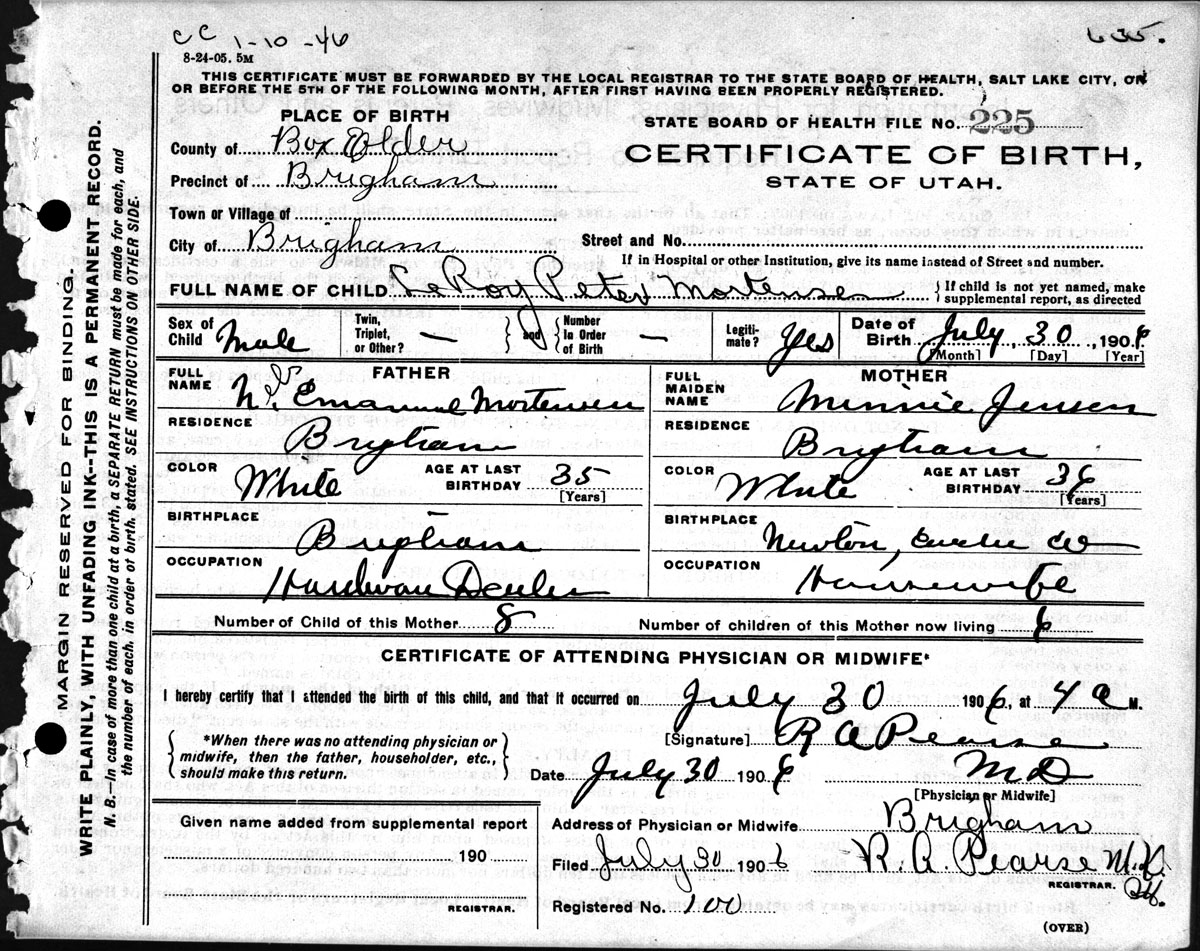 CC 1-10-46
635.
8-24-05. 5M
THIS CERTIFICATE MUST BE FORWARDED BY THE LOCAL REGISTRAR TO THE STATE BOARD OF HEALTH, SALT LAKE CITY, ON
OR BEFORE THE 5TH OF THE FOLLOWING MONTH, AFTER FIRST HAVING BEEN PROPERLY REGISTERED.
PLACE OF BIRTH
County of Box Elder
Precinct of Brigham
Town or Village of
City of Brigham
STATE BOARD OF HEALTH FILE No. 225
CERTIFICATE OF BIRTH,
STATE OF UTAH.
Street and No.
If in Hospital or other Institution, give its name instead of Street and number.
FULL NAME OF CHILD LeRoy Peter Mortensen { If child is not yet named, make
supplemental report, as directed
Sex of Child Male
Twin, Triplet, or Other? — { and } Number In Order of Birth —
Legiti-mate? Yes
Date of Birth July 30, 1906
[Month] [Day] [Year]
FATHER
FULL NAME Emanuel Mortensen
RESIDENCE Brigham
COLOR White AGE AT LAST BIRTHDAY 35
[Years]
BIRTHPLACE Brigham
OCCUPATION Hardware Dealer
MOTHER
FULL MAIDEN NAME Minnie Jensen
RESIDENCE Brigham
COLOR White AGE AT LAST BIRTHDAY 36
[Years]
BIRTHPLACE Newton, Co
OCCUPATION Housewife
Number of Child of this Mother 8 Number of children of this Mother now living 6
CERTIFICATE OF ATTENDING PHYSICIAN OR MIDWIFE*
I hereby certify that I attended the birth of this child, and that it occurred on July 30 1906, at 4 a M.
{ *When there was no attending physician or
midwife, then the father, householder, etc.,
should make this return. }
[Signature] R A Pearse
Date July 30 1906 M D
[Physician or Midwife]
Given name added from supplemental report
190
REGISTRAR.
Address of Physician or Midwife Brigham
Filed July 30 1906 R. A. Pearse M.D.
REGISTRAR.
Registered No. 100
(OVER)
MARGIN RESERVED FOR BINDING.
WRITE PLAINLY, WITH UNFADING INK--THIS IS A PERMANENT RECORD.
N. B.—In case of more than one child at a birth, a SEPARATE RETURN must be made for each, and
the number of each, in order of birth, stated. SEE INSTRUCTIONS ON OTHER SIDE.